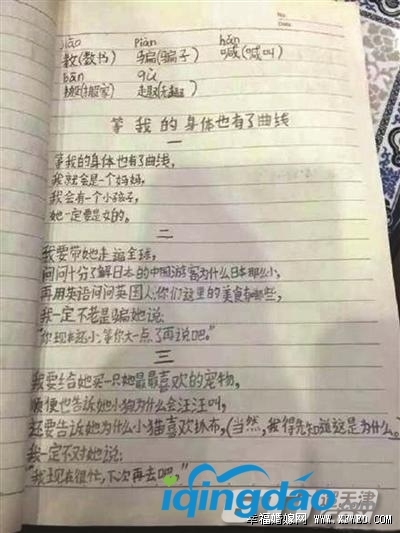 No.
Date
jiāo piàn hǎn
教(教书) 骗(骗子) 喊(喊叫)
bān qù
搬(搬家) 趣(无趣)
等我的身体也有了曲线
一
等我的身体也有了曲线,
我就会是一个妈妈,
我会有一个小孩子,
她一定要是女的。
二
我要带她走遍全球,
问问十分了解日本的中国游客为什么日本那么小,
再用英语问问英国人:你们这里的美食有哪些,
我一定不老是骗她说:
"你现在还小,等你大一点了再说吧。"
三
我要给她买一只她最最喜欢的宠物,
顺便也告诉她小狗为什么会汪汪叫,
还要告诉她为什么小猫喜欢抓布,(当然,我得先知道这是为什么。)
我一定不对她说:
"我现在很忙,下次再去吧。"
iqingdao
天津
幸福婚嫁网 www.xfwed.com